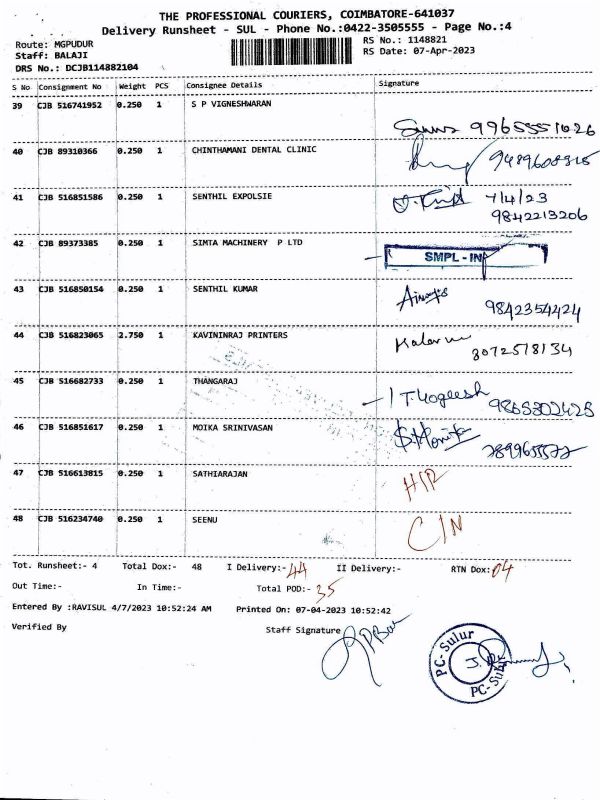 THE PROFESSIONAL COURIERS, COIMBATORE-641037
Delivery Runsheet - SUL - Phone No.:0422-3505555 - Page No.:4
Route: MGPUDUR
RS No.: 1148821
Staff: BALAJI
RS Date: 07-Apr-2023
DRS No.: DCJB114882104
S No Consignment No Weight PCS Consignee Details Signature
39 CJB 516741952 0.250 1 S P VIGNESHWARAN
9965551026
40 CJB 89310366 0.250 1 CHINTHAMANI DENTAL CLINIC
41 CJB 516851586 0.250 1 SENTHIL EXPOLSIE 7/4/23
9842213206
42 CJB 89373385 0.250 1 SIMTA MACHINERY P LTD
SMPL - IN
43 CJB 516850154 0.250 1 SENTHIL KUMAR
9842354424
44 CJB 516823065 2.750 1 KAVININRAJ PRINTERS
8072518134
45 CJB 516682733 0.250 1 THANGARAJ
T Yogeesh 9865302425
46 CJB 516851617 0.250 1 MOIKA SRINIVASAN S. Monika
47 CJB 516613815 0.250 1 SATHIARAJAN
48 CJB 516234740 0.250 1 SEENU
C/N
Tot. Runsheet:- 4 Total Dox:- 48 I Delivery:- 44 II Delivery:- RTN Dox: 04
Out Time:- In Time:- Total POD:- 35
Entered By :RAVISUL 4/7/2023 10:52:24 AM Printed On: 07-04-2023 10:52:42
Verified By Staff Signature
PC-Sulur
PC-Sulur